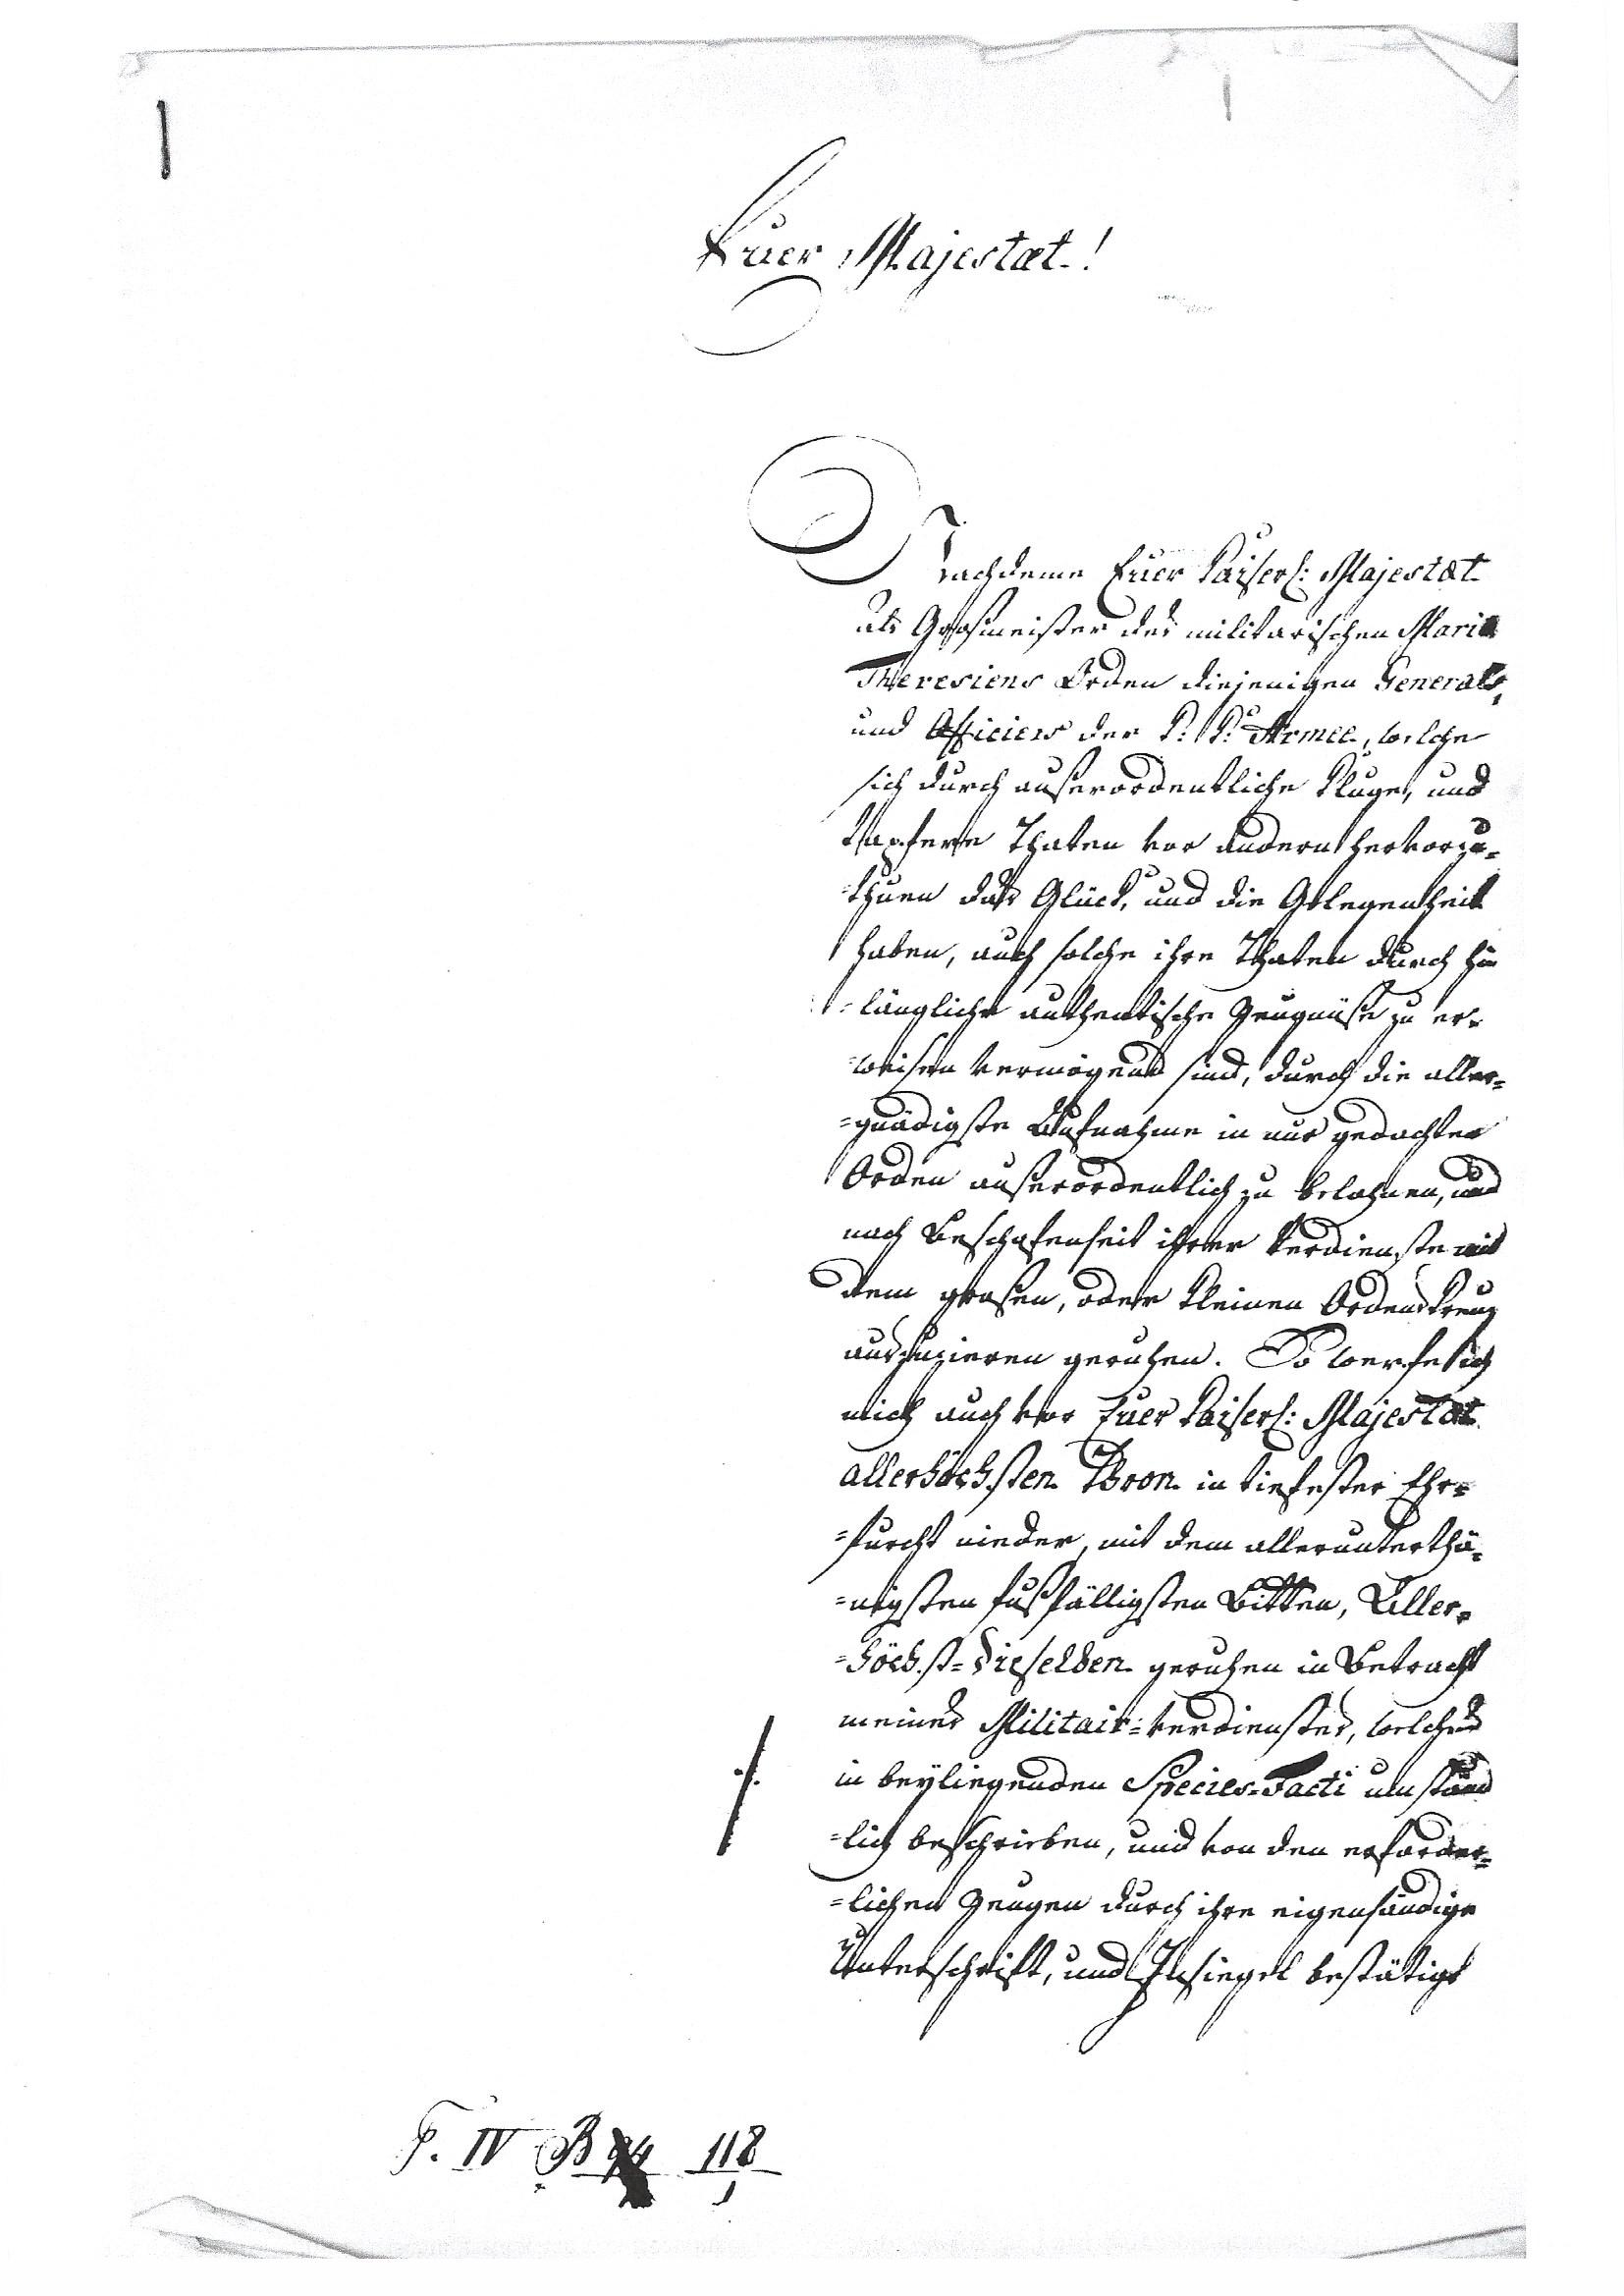 Euer Majestæt.!
Nachdeme Euer Kaiserl: Majestæt
als Großmeister des militarischen Maria
Theresiens Orden diejenigen Generals,
und Officiers der K: K: Armee, welche
sich durch außerordentliche Kluge, und
Tapfere Thaten vor andern hervorzu-
-thuen das Glück, und die Gelegenheit
haben, auch solche ihre Thaten durch hin
-längliche authentische Zeugnüße zu er-
-weisen vermögend sind, durch die aller-
-gnädigste Aufnahme in nur gedachten
Orden außerordentlich zu belohnen, und
nach Beschafenheit ihrer Verdienste mit
dem großen, oder kleinen Ordenskreuz
auszuzieren geruhen. So werfe ich
mich auch vor Euer Kaiserl: Majestæt
allerhöchsten Thron in tiefester Ehr-
-furcht nieder, mit dem allerunterthä-
-nigsten fußfälligsten Bitten, Aller-
-höchst-Dieselben geruhen in Betracht
meines Militair-Verdienstes, welches
in beyliegenden Species-Facti umständ
-lich beschrieben, und von den erforder-
-lichen Zeugen durch ihre eigenhändige
Unterschrift, und Insiegel bestätigt
F. IV B 118